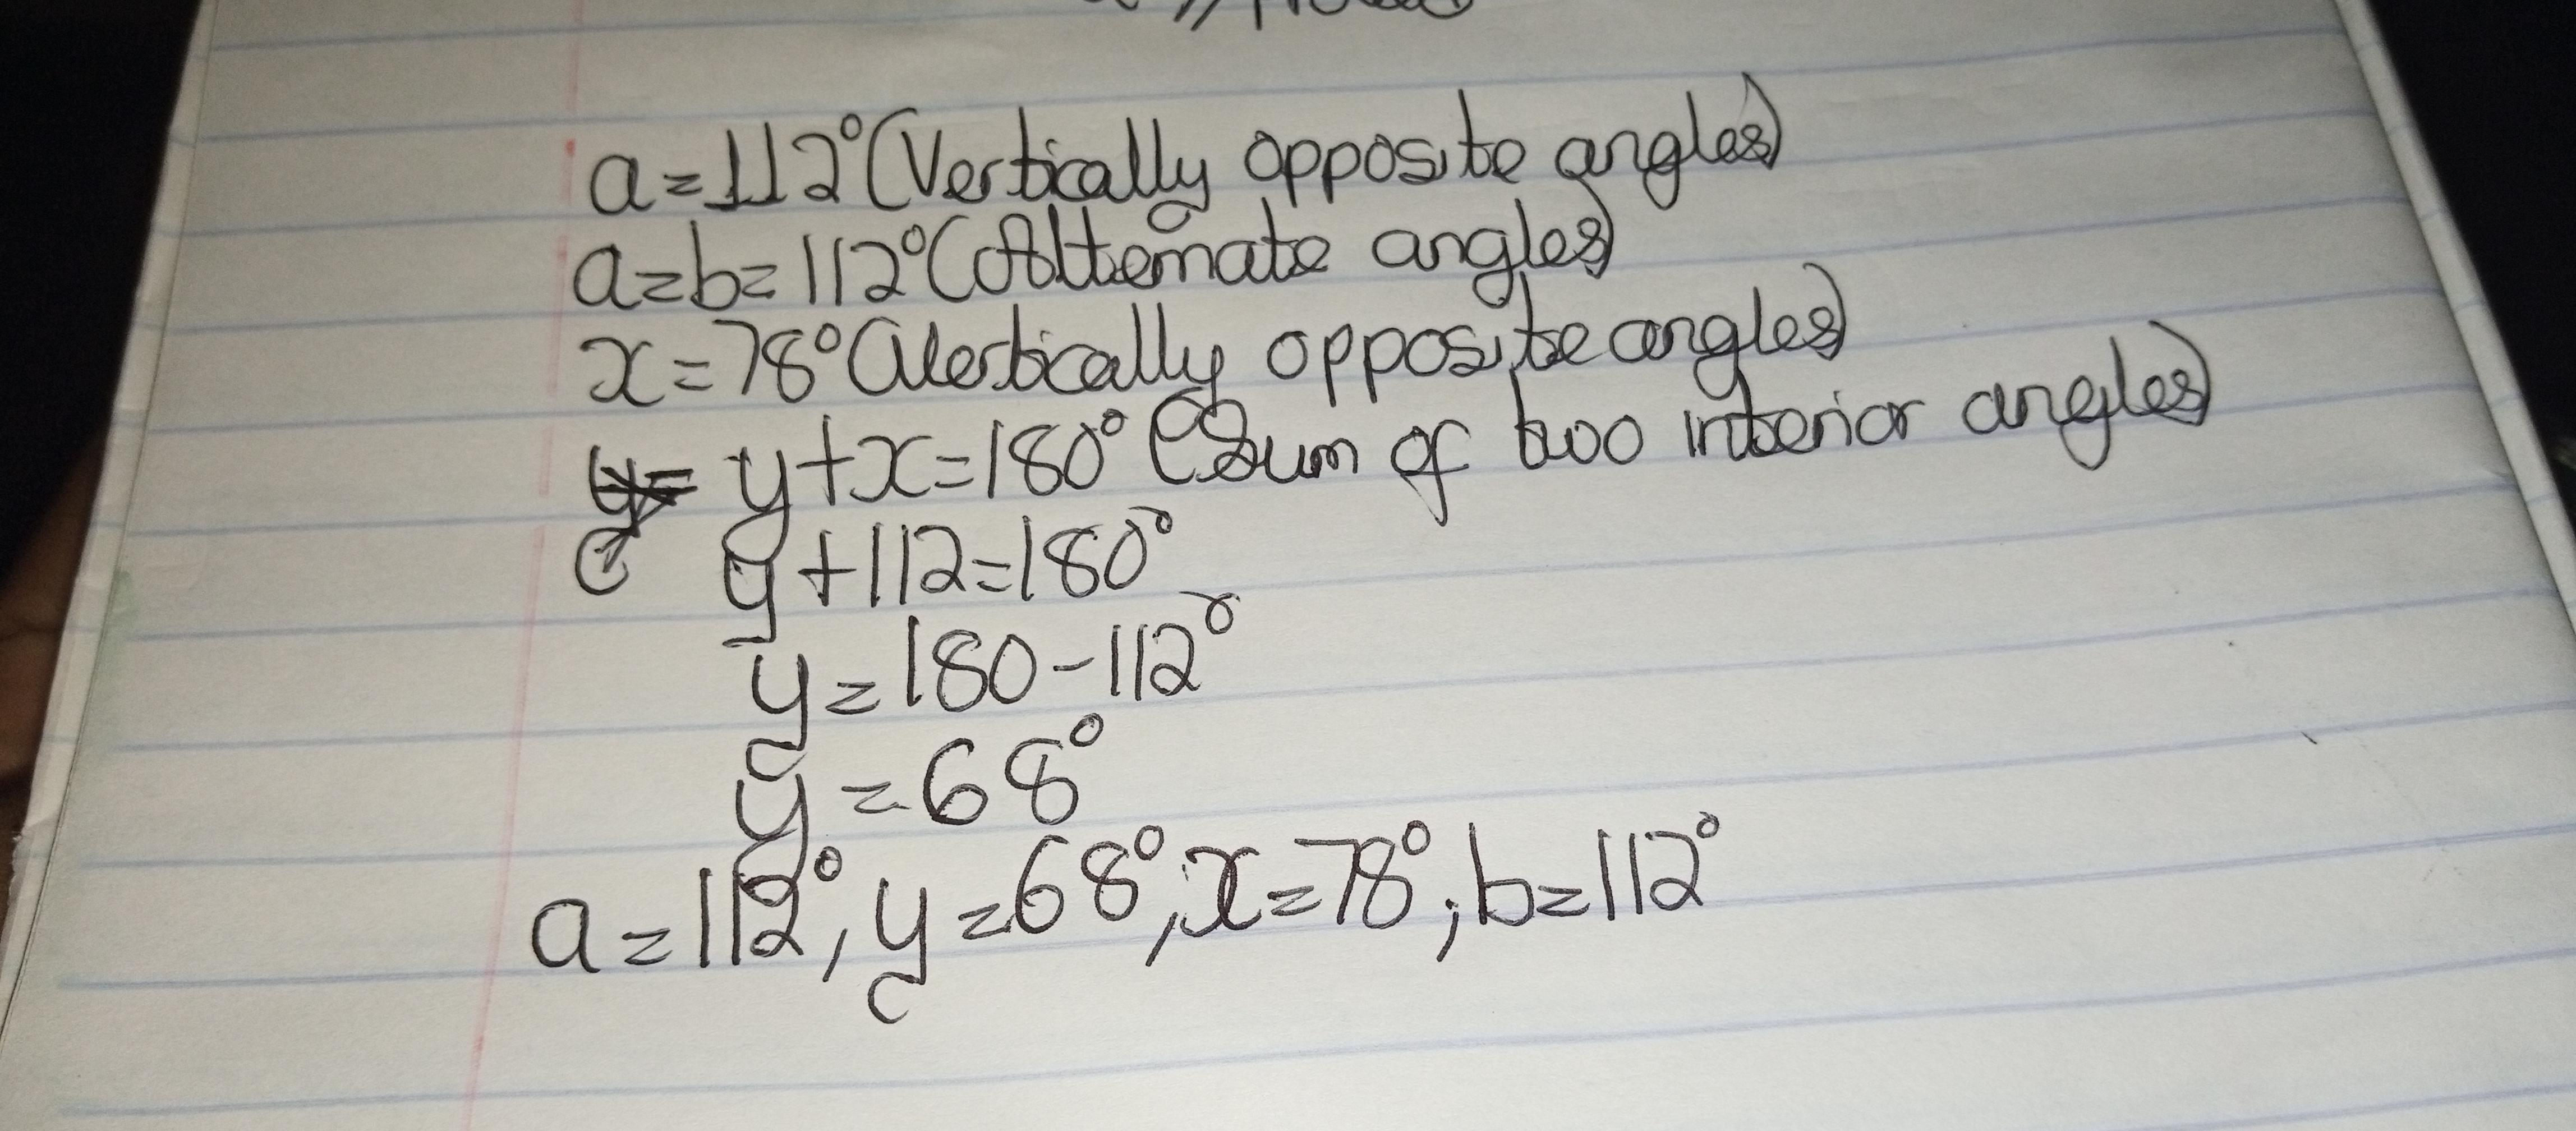 a=112°(Vertically opposite angles)
a=b=112°(Alternate angles)
x=78°(Vertically opposite angles)
y+x=180° (Sum of two interior angles)
y+112=180°
y=180-112°
y=68°
a=112°, y=68°, x=78°, b=112°